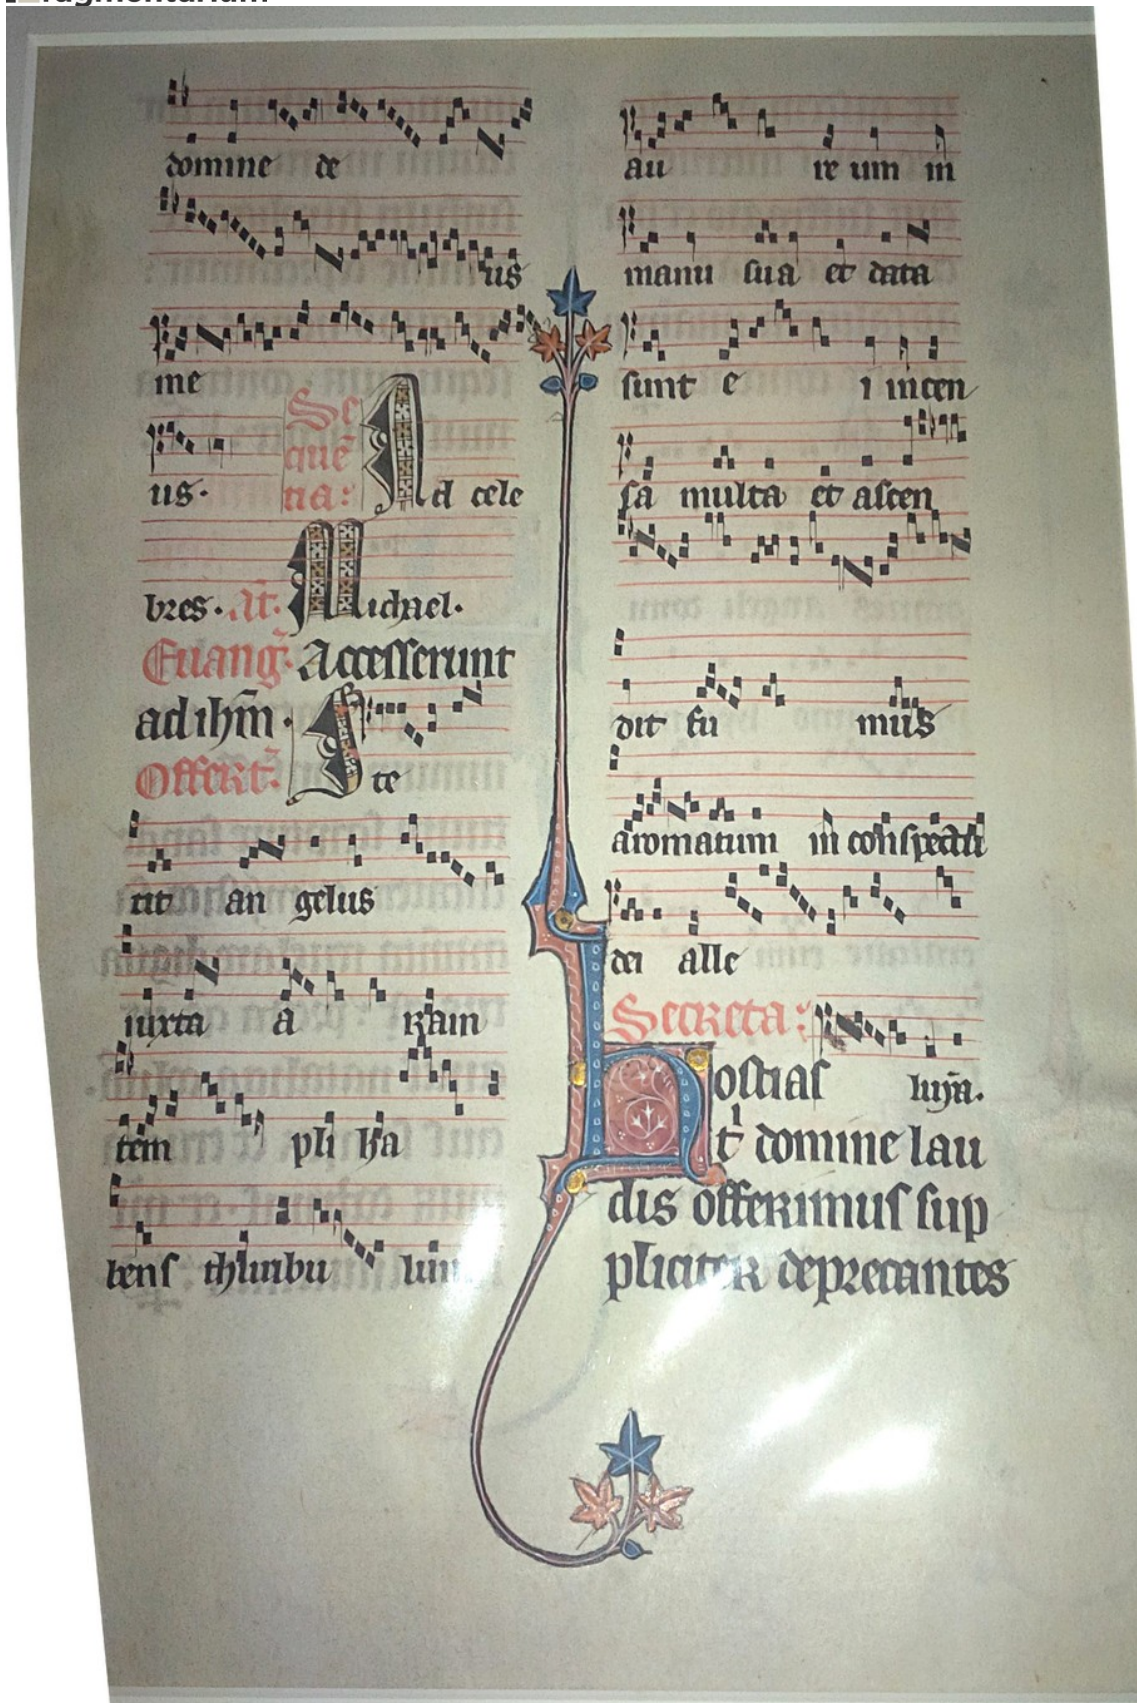 domine de
us
me
Se
que᷒
na:
us. Ad cele
bres. At. Michael.
Euang. Accesserunt
ad ihm̄. Ste
Offert.
tit an gelus
iuxta a ram
tem pli ha
bens thuribu lum
au re um in
manu sua et data
sunt e i incen
sa multa et ascen
dit fu mus
aromatum in conspectu
dei alle
Secreta:
Hostias luȳa.
tͥ domine lau
dis offerimus sup
pliciter deprecantes